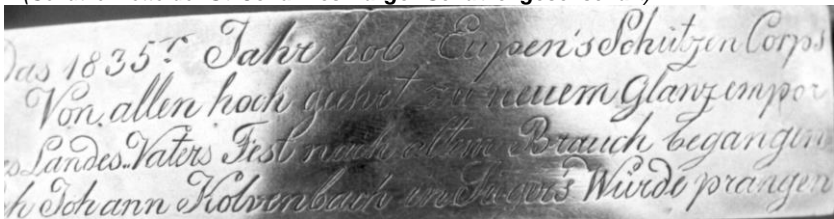 Das 1835.r Jahr hob Eupen's Schützen Corps
Von allen hoch geehrt zu neuem Glanz empor
s Landes-Vaters Fest nach altem Brauch begangen
h Johann Kolvenbach in Sieger's Würde prangen